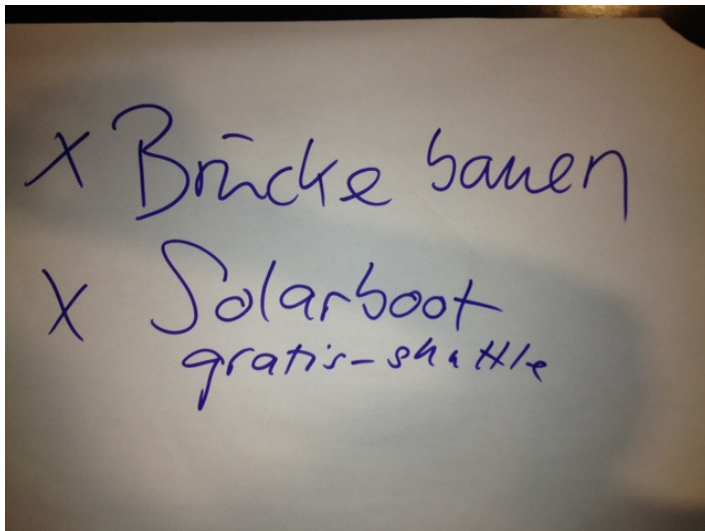 x Brücke bauen
x Solarboot
gratis-shuttle